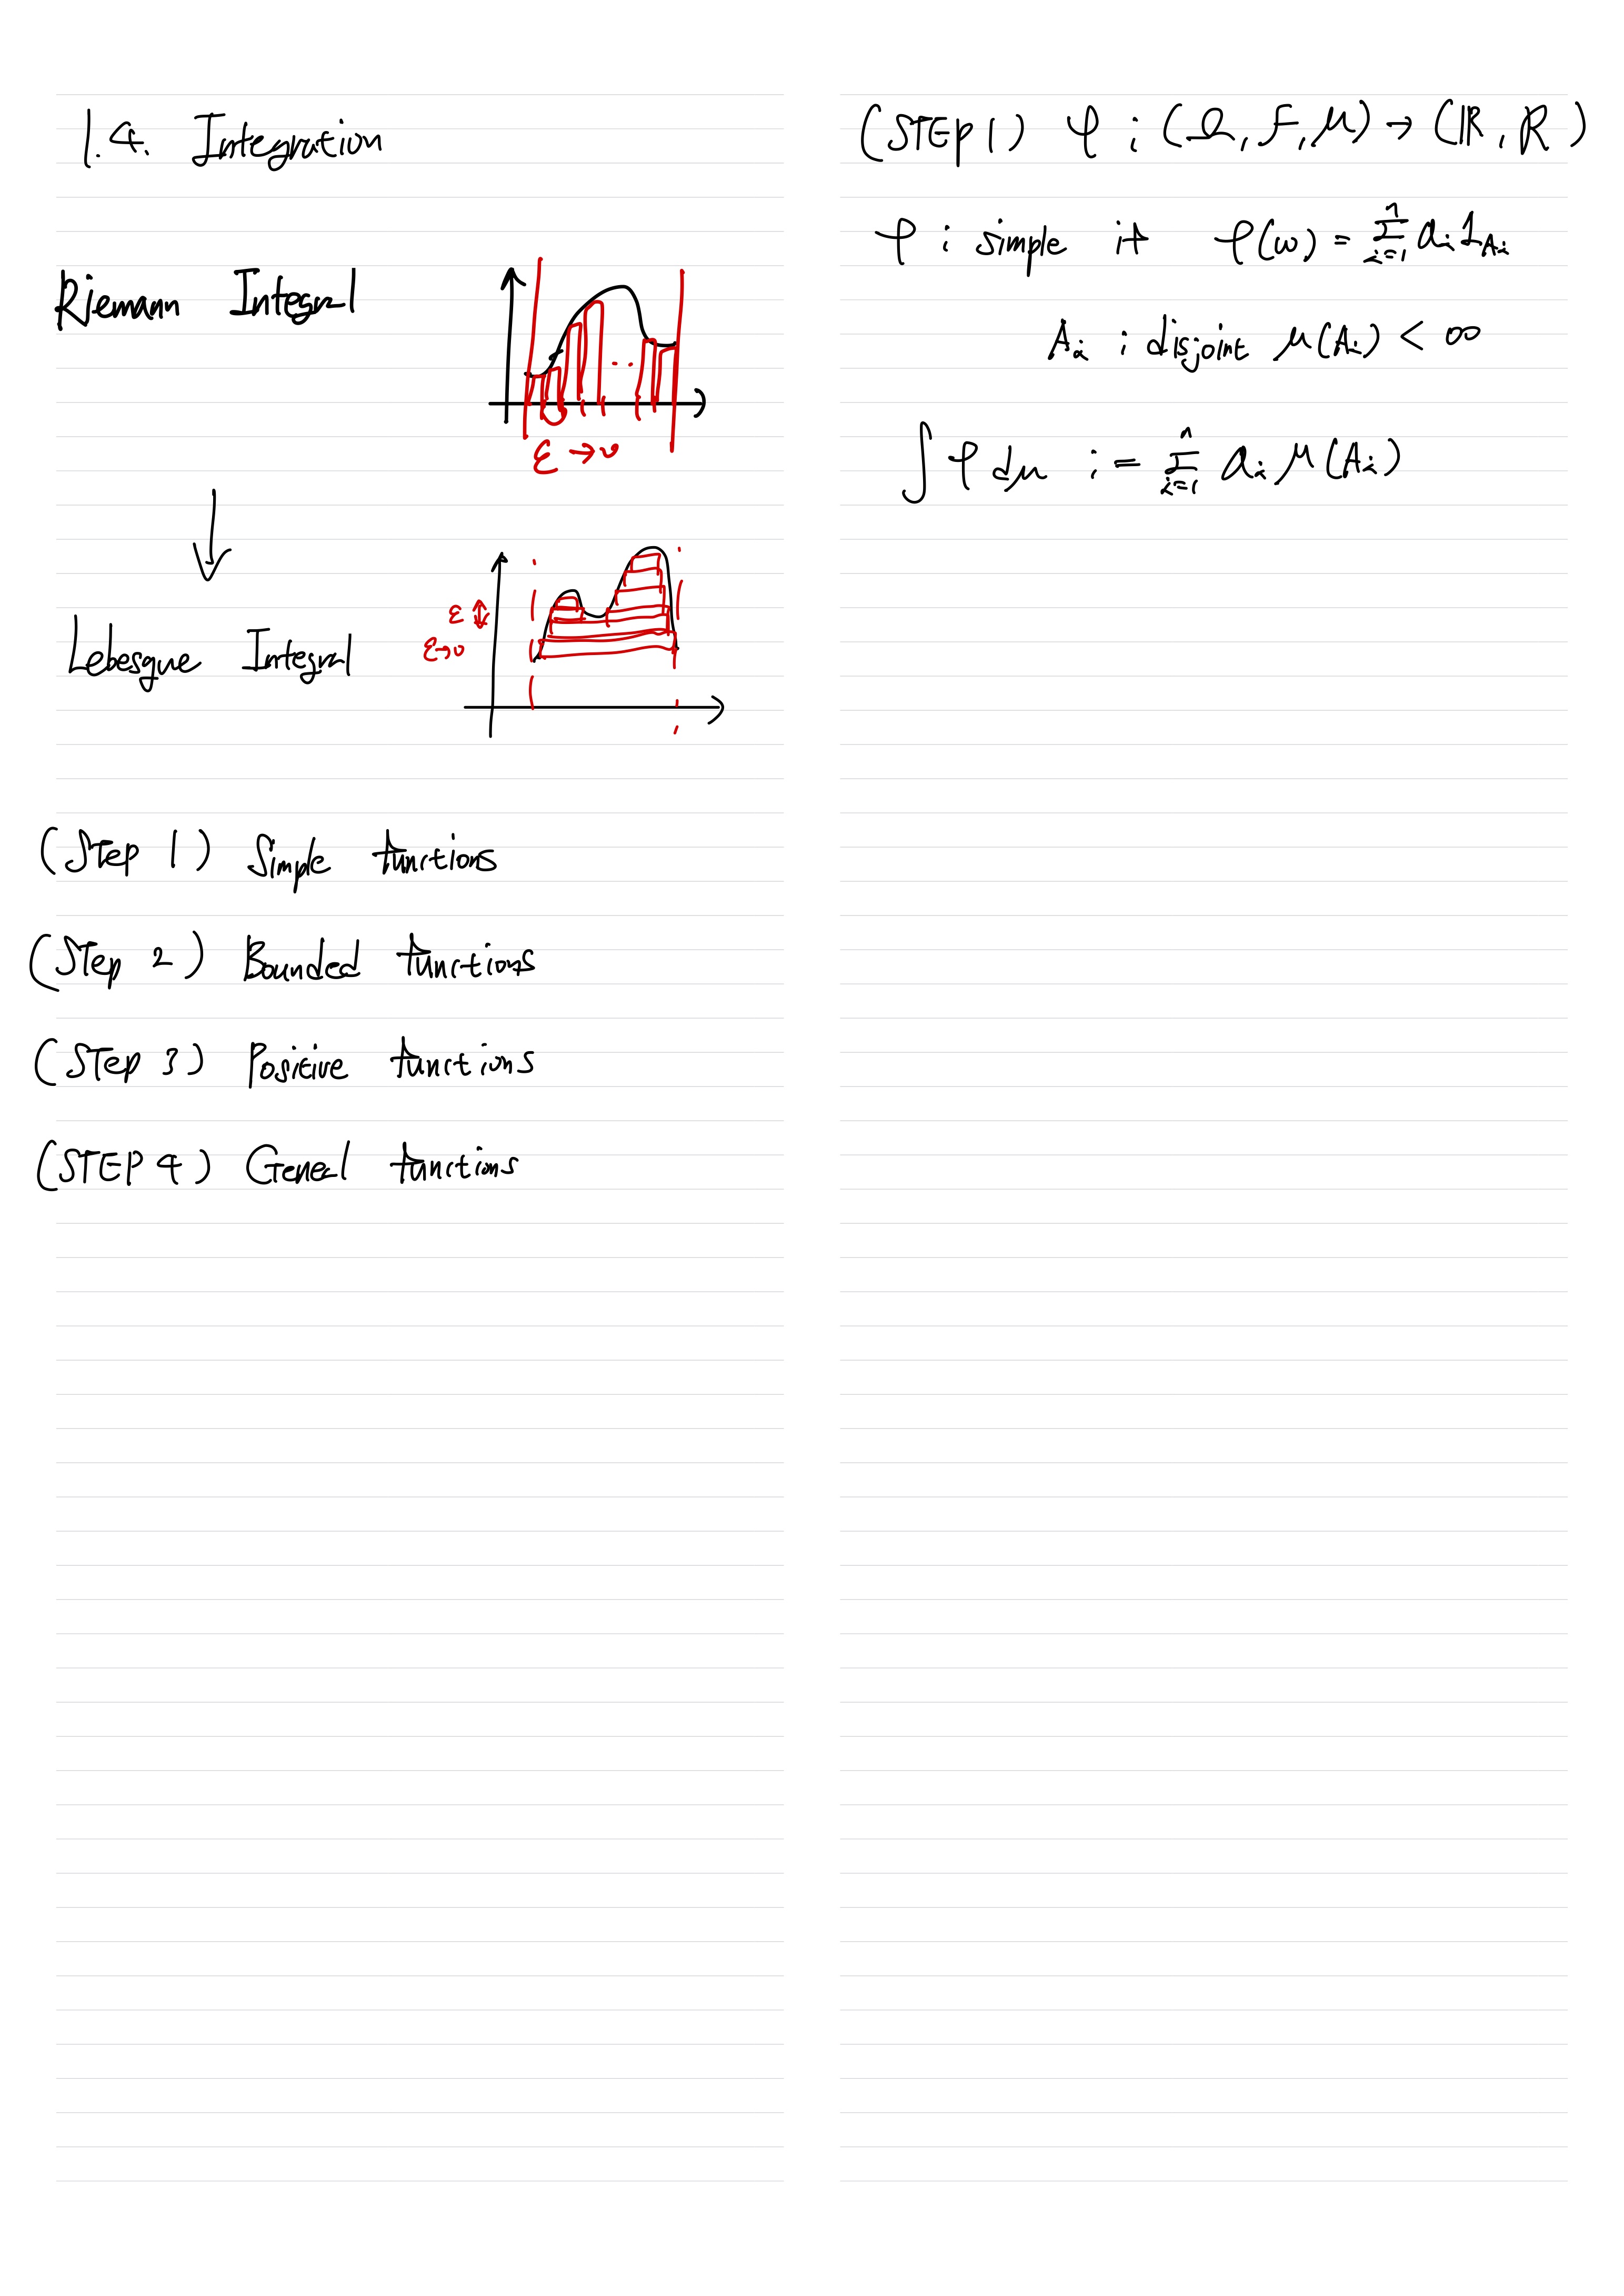 1.4. Integration
Riemann Integral
ε → 0
Lebesgue Integral
ε
ε→0
(Step 1) Simple functions
(Step 2) Bounded functions
(Step 3) Positive functions
(STEP 4) General functions
(STEP 1) φ : (Ω, F, μ) → (ℝ, R)
φ : simple if φ(ω) = Σ_{i=1}^{n} a_i 1_{A_i}
A_i : disjoint μ(A_i) < ∞
∫ φ dμ := Σ_{i=1}^{n} a_i μ(A_i)